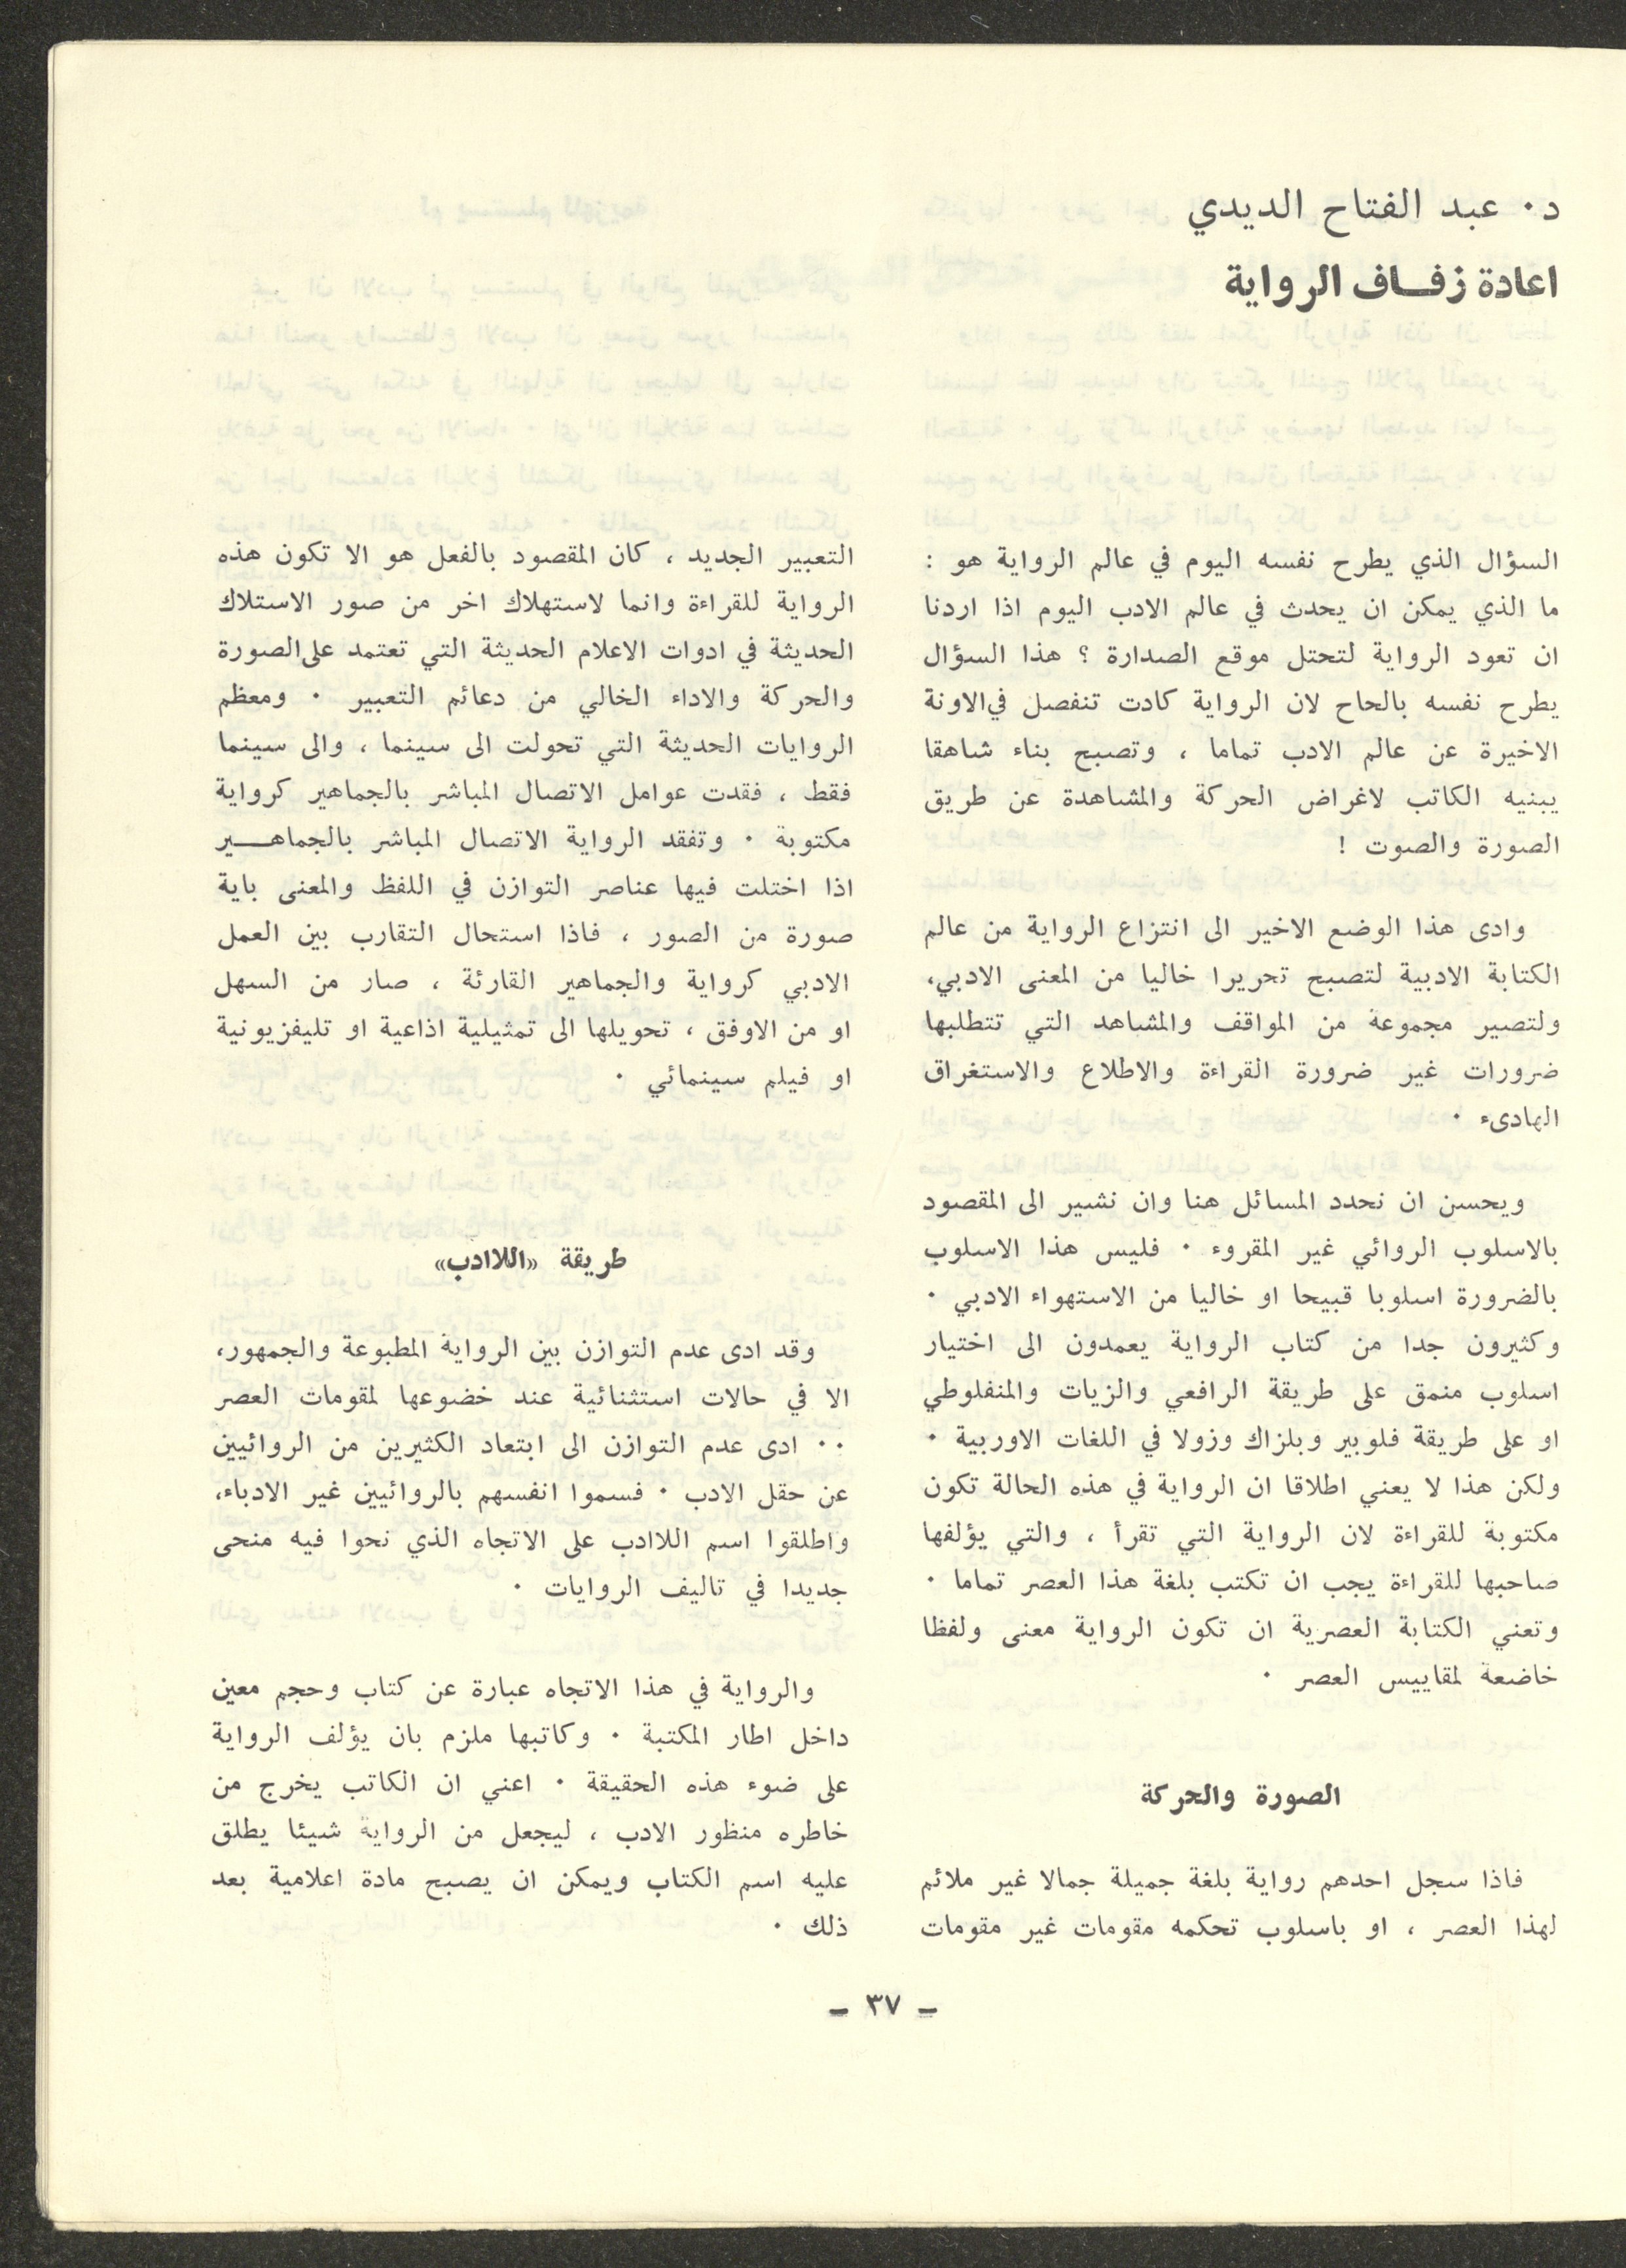 د. عبد الفتاح الديدي
اعادة زفاف الرواية
السؤال الذي يطرح نفسه اليوم في عالم الرواية هو :
ما الذي يمكن ان يحدث في عالم الادب اليوم اذا اردنا
ان تعود الرواية لتحتل موقع الصدارة ؟ هذا السؤال
يطرح نفسه بالحاح لان الرواية كادت تنفصل في الاونة
الاخيرة عن عالم الادب تماما ، وتصبح بناء شاهقا
يبنيه الكاتب لاغراض الحركة والمشاهدة عن طريق
الصورة والصوت !
وادى هذا الوضع الاخير الى انتزاع الرواية من عالم
الكتابة الادبية لتصبح تحريرا خاليا من المعنى الادبي،
ولتصير مجموعة من المواقف والمشاهد التي تتطلبها
ضرورات غير ضرورة القراءة والاطلاع والاستغراق
الهادىء .
ويحسن ان نحدد المسائل هنا وان نشير الى المقصود
بالاسلوب الروائي غير المقروء . فليس هذا الاسلوب
بالضرورة اسلوبا قبيحا او خاليا من الاستهواء الادبي .
وكثيرون جدا من كتاب الرواية يعمدون الى اختيار
اسلوب منمق على طريقة الرافعي والزيات والمنفلوطي
او على طريقة فلوبير وبلزاك وزولا في اللغات الاوربية .
ولكن هذا لا يعني اطلاقا ان الرواية في هذه الحالة تكون
مكتوبة للقراءة لان الرواية التي تقرأ ، والتي يؤلفها
صاحبها للقراءة يجب ان تكتب بلغة هذا العصر تماما .
وتعني الكتابة العصرية ان تكون الرواية معنى ولفظا
خاضعة لمقاييس العصر .
الصورة والحركة
فاذا سجل احدهم رواية بلغة جميلة جمالا غير ملائم
لهذا العصر ، او باسلوب تحكمه مقومات غير مقومات
التعبير الجديد ، كان المقصود بالفعل هو الا تكون هذه
الرواية للقراءة وانما لاستهلاك اخر من صور الاستلاك
الحديثة في ادوات الاعلام الحديثة التي تعتمد على الصورة
والحركة والاداء الخالي من دعائم التعبير . ومعظم
الروايات الحديثة التي تحولت الى سينما ، والى سينما
فقط ، فقدت عوامل الاتصال المباشر بالجماهير كرواية
مكتوبة . وتفقد الرواية الاتصال المباشر بالجماهير
اذا اختلت فيها عناصر التوازن في اللفظ والمعنى باية
صورة من الصور ، فاذا استحال التقارب بين العمل
الادبي كرواية والجماهير القارئة ، صار من السهل
او من الاوفق ، تحويلها الى تمثيلية اذاعية او تليفزيونية
او فيلم سينمائي .
طريقة «اللاادب»
وقد ادى عدم التوازن بين الرواية المطبوعة والجمهور،
الا في حالات استثنائية عند خضوعها لمقومات العصر
.. ادى عدم التوازن الى ابتعاد الكثيرين من الروائيين
عن حقل الادب . فسموا انفسهم بالروائيين غير الادباء،
واطلقوا اسم اللاادب على الاتجاه الذي نحوا فيه منحى
جديدا في تاليف الروايات .
والرواية في هذا الاتجاه عبارة عن كتاب وحجم معين
داخل اطار المكتبة . وكاتبها ملزم بان يؤلف الرواية
على ضوء هذه الحقيقة . اعني ان الكاتب يخرج من
خاطره منظور الادب ، ليجعل من الرواية شيئا يطلق
عليه اسم الكتاب ويمكن ان يصبح مادة اعلامية بعد
ذلك .
- ٣٧ -